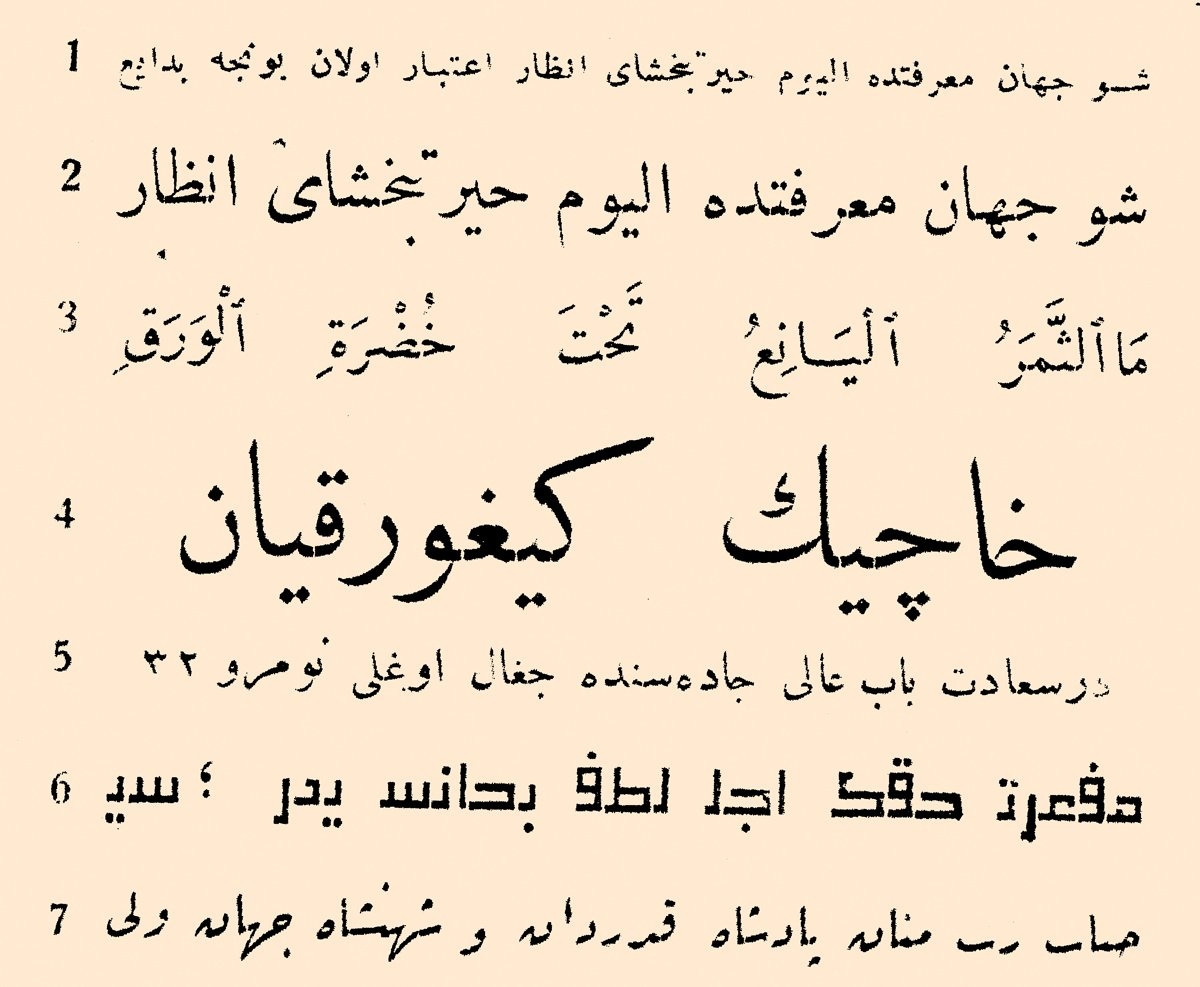 1 شو جهان معرفتده اليوم حيرتبخشای انظار اعتبار اولان بونجه بدايع
2 شو جهان معرفتده اليوم حيرتبخشای انظار
3 مَاٱلثَّمَرُ ٱلْيَـانِعُ تَحْتَ خُضْرَةِ ٱلْوَرَقِ
4 خاچيك كيغورقيان
5 درسعادت باب عالی جاده‌سنده جغال اوغلی نومرو ٣٢
6 اجل لطف يدر ؛
7 جناب رب منان پادشاه قدردان و شهنشاه جهان ولی